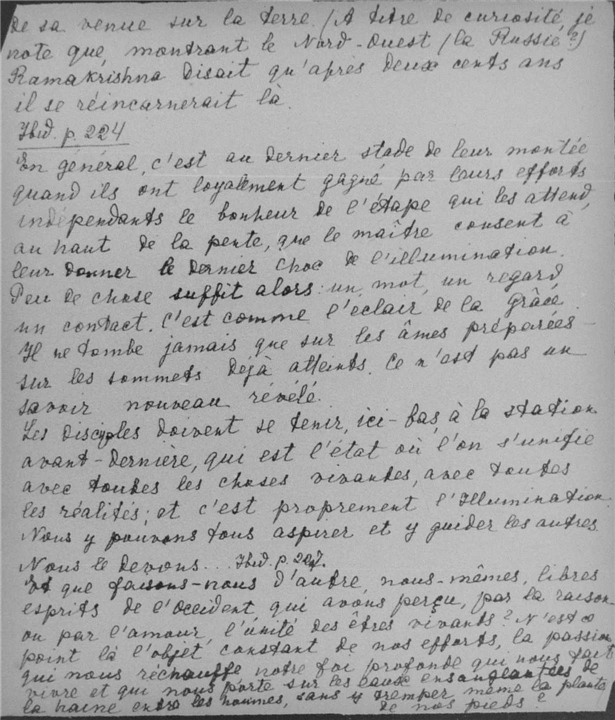 de sa venue sur la terre. (A titre de curiosité, je
note que, montrant le Nord-Ouest (la Russie?)
Ramakrishna disait qu'après deux cents ans
il se réincarnerait là.
Ibid. p. 224
En général, c'est au dernier stade de leur montée
quand ils ont loyalement gagné par leurs efforts
indépendants le bonheur de l'étape qui les attend,
au haut de la pente, que le maître consent à
leur donner le dernier choc de l'illumination.
Peu de chose suffit alors: un mot, un regard
un contact. C'est comme l'éclair de la Grâce
Il ne tombe jamais que sur les âmes préparées
sur les sommets déjà atteints. Ce n'est pas un
savoir nouveau révélé.
Les disciples doivent se tenir, ici-bas à la station
avant-dernière, qui est l'état où l'on s'unifie
avec toutes les choses vivantes, avec toutes
les réalités; et c'est proprement l'Illumination.
Nous y pouvons tous aspirer et y guider les autres
Nous le devons... Ibid. p. 227.
Et que faisons-nous d'autre, nous-mêmes, libres
esprits de l'Occident, qui avons perçu, par la raison
ou par l'amour, l'unité des êtres vivants? N'est ce
point là l'objet constant de nos efforts, la passion
qui nous réchauffe notre foi profonde qui nous fait
vivre et qui nous porte sur les eaux ensanglantées de
la haine entre les hommes, sans y tremper même la plante
de nos pieds?